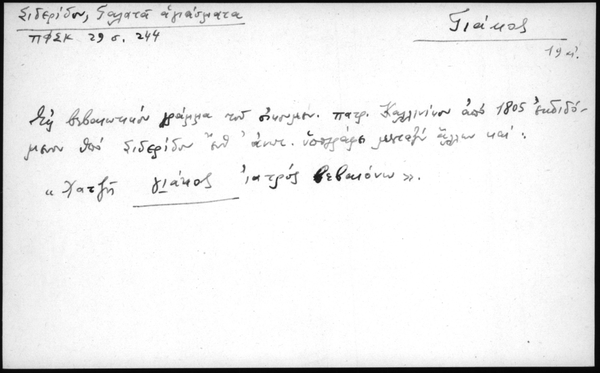 Σιδερίδου, Γαλατᾶ ἁγιάσματα
Γιάκος
ΠΦΣΚ 29 σ. 244
19 α΄.
Εἰς βεβαιωτικὸν γράμμα τοῦ οἰκουμεν. πατρ. Καλλινίκου ἀπὸ 1805 ἐκδιδό-
μενον ὑπὸ Σιδερίδου ἔνθ᾿ ἀνωτ. ὑπογράφει μεταξὺ ἄλλων καί:
« Χατζῆ γιάκος ἰατρός βεβαιόνω ».